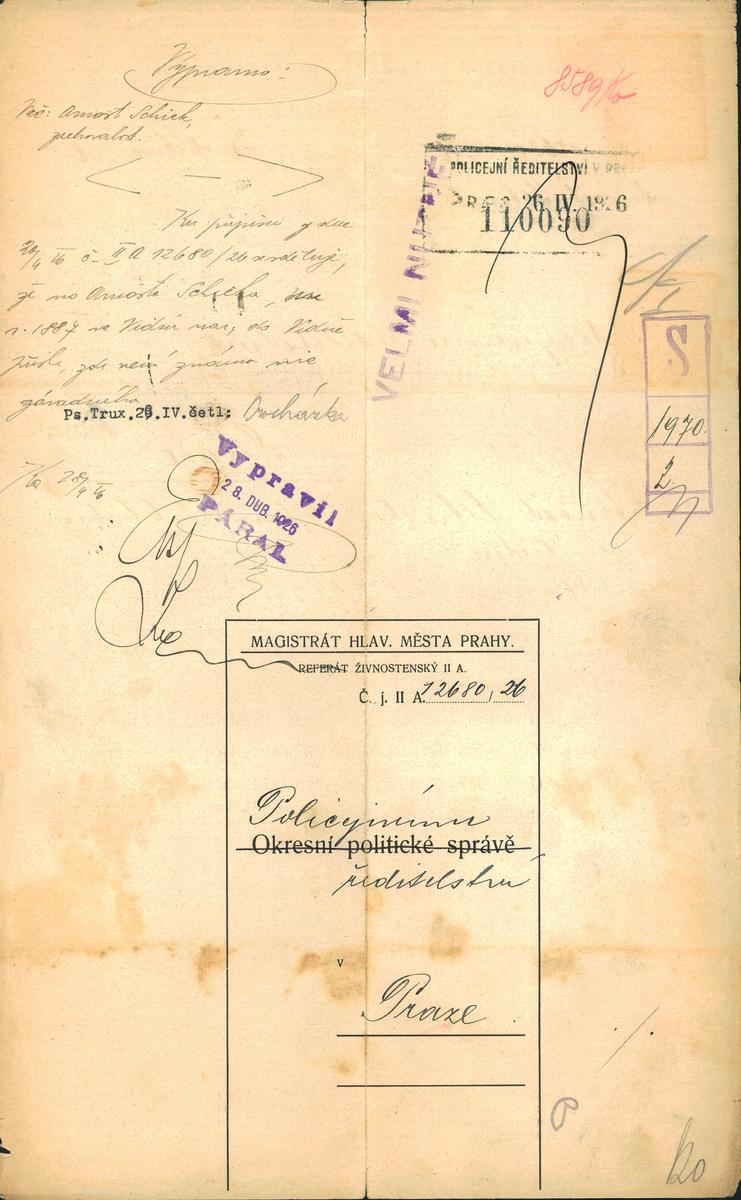 Vypraveno:
Věc: Arnošt Schick,
zachovalost.
Ku přípisu z dne
20/4 26 č. II A 12680/26 se sděluje,
že na Arnošta Schicka,
r. 1887 ve Vídni nar., do Vídně
přísl., zde není známo nic
závadného.
Ps.Trux.28.IV.četl: Procházka
28/4 26
Vypravil
28. DUB. 1926
PÁRAL
8589/Ko
POLICEJNÍ ŘEDITELSTVÍ V
PRES 26 IV 1926
110090
VELMI NUTNÉ
S
1970.
2
MAGISTRÁT HLAV. MĚSTA PRAHY.
REFERÁT ŽIVNOSTENSKÝ II A.
Č. j. II A. 12680, 26
Policejnímu
Okresní politické správě
ředitelství
v
Praze